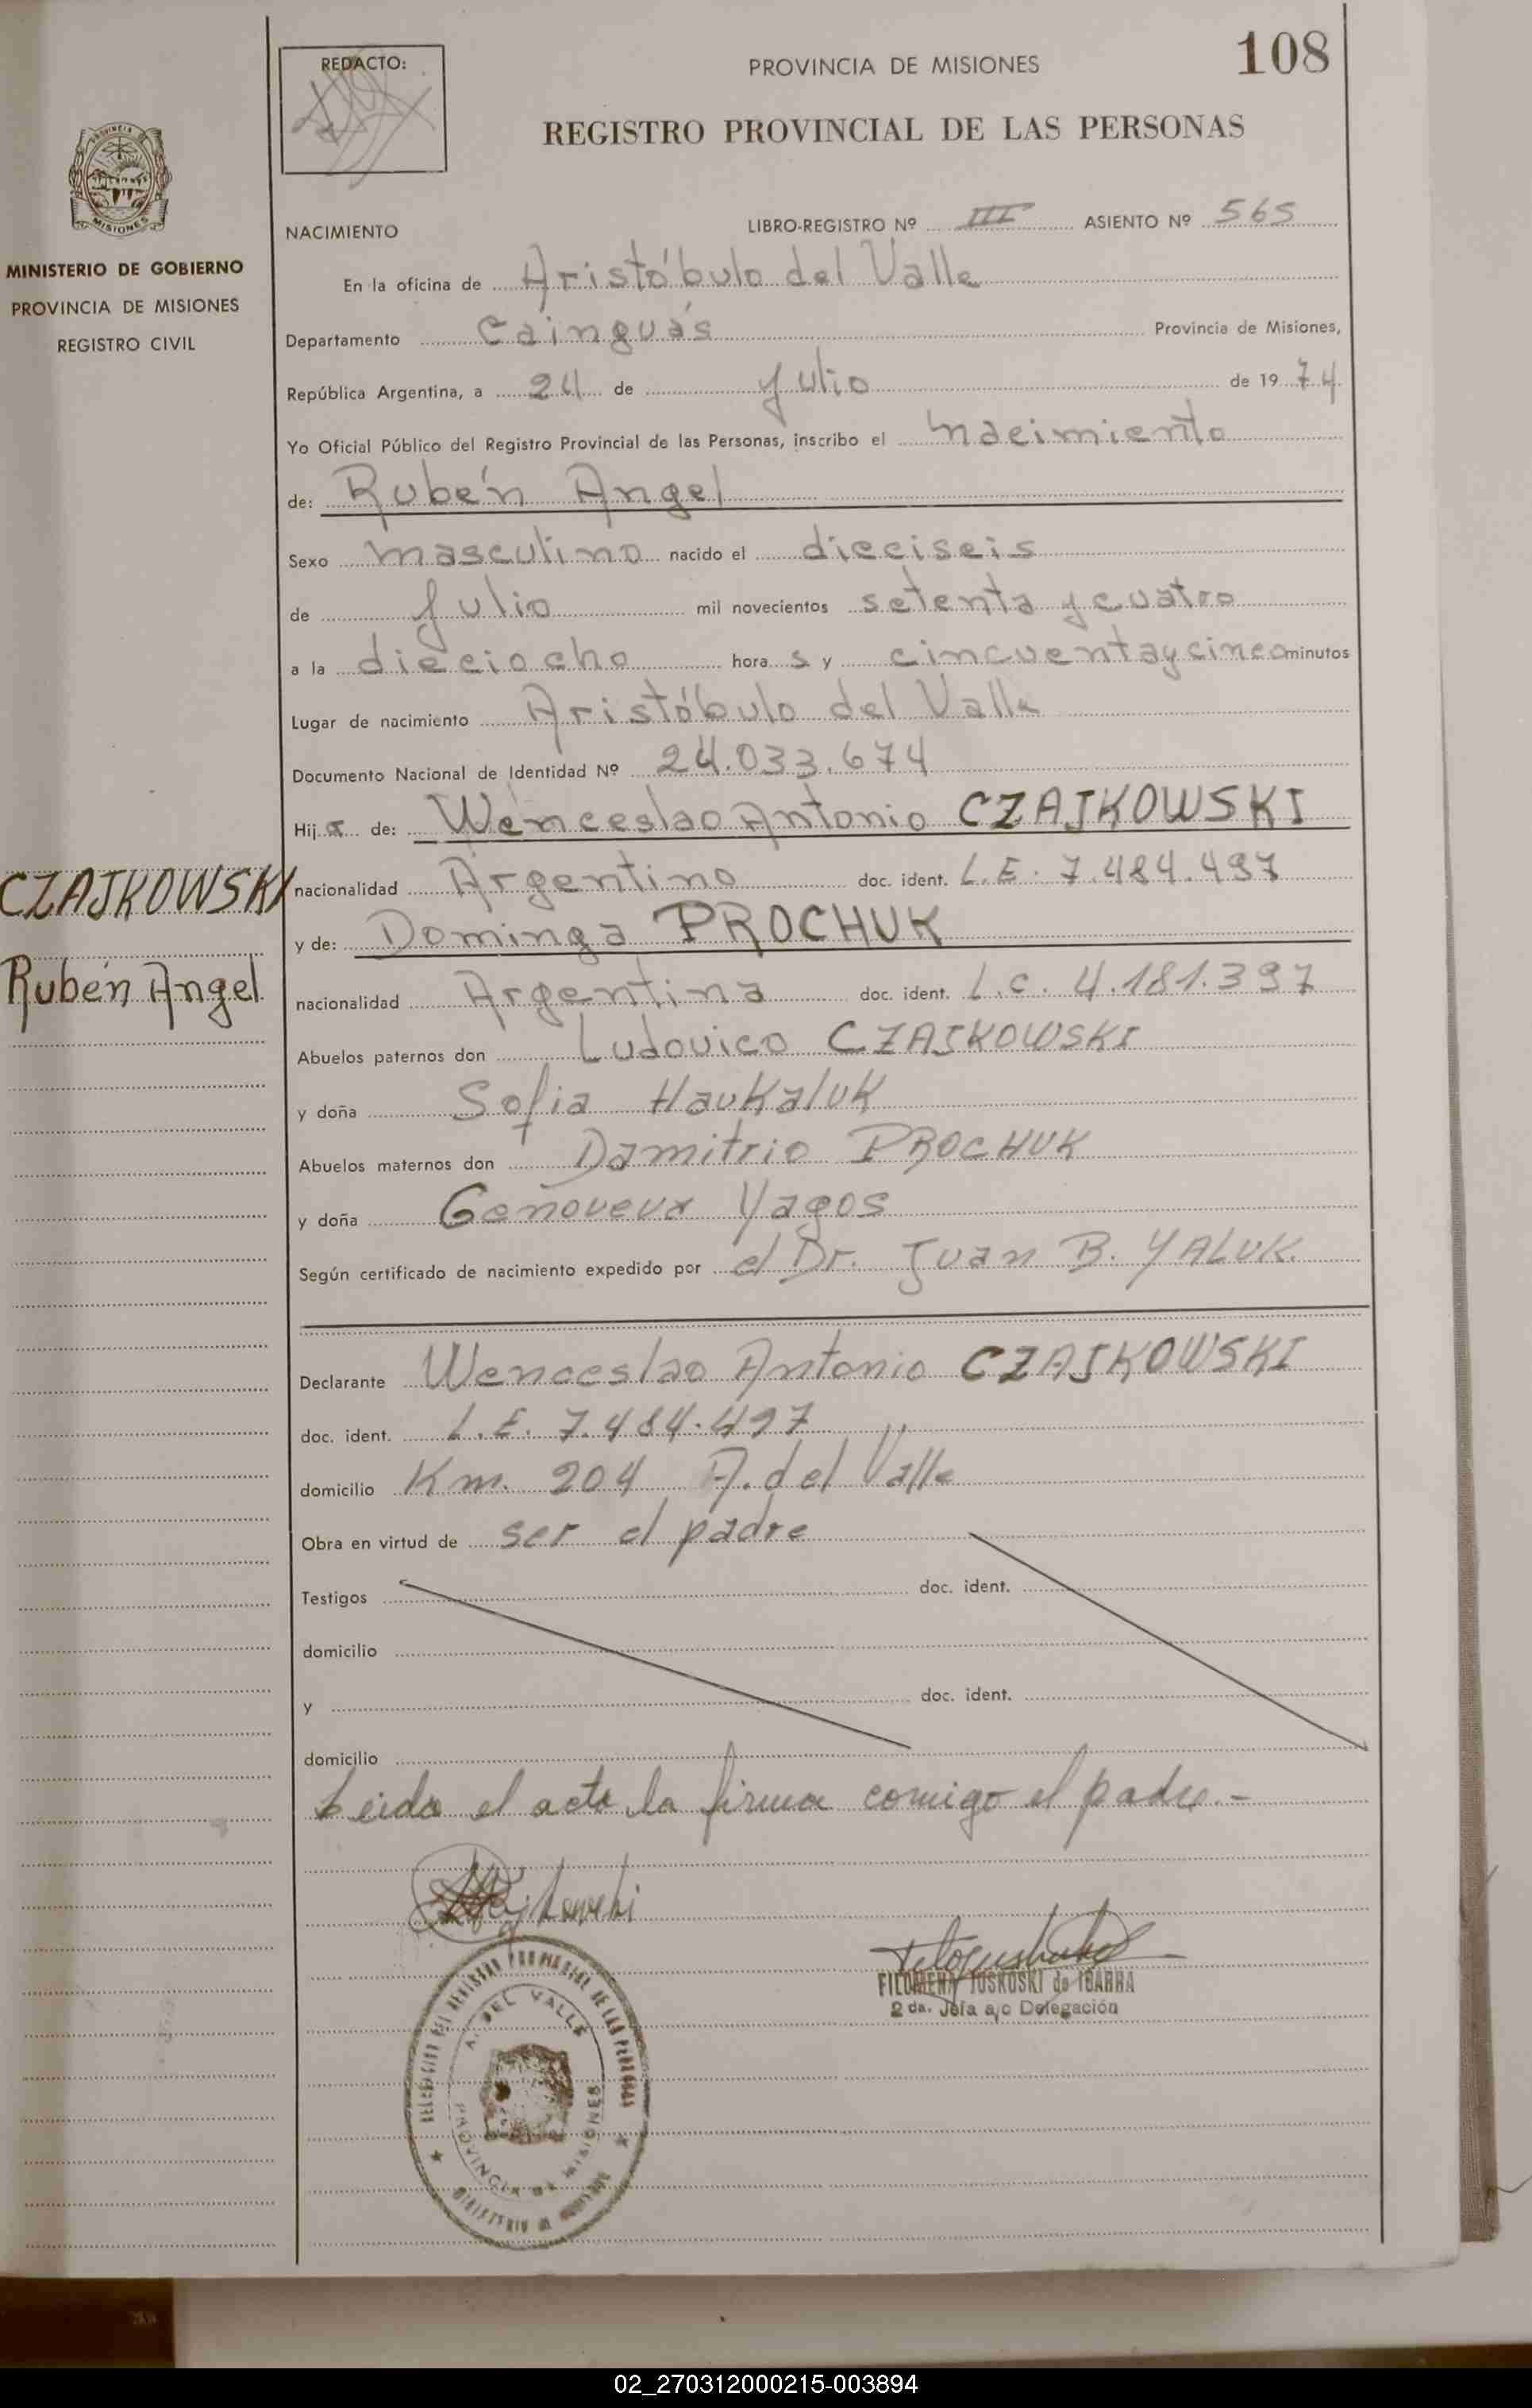 108
REDACTO:
PROVINCIA DE MISIONES
REGISTRO PROVINCIAL DE LAS PERSONAS
PROVINCIA DE
MISIONES
MINISTERIO DE GOBIERNO
PROVINCIA DE MISIONES
REGISTRO CIVIL
NACIMIENTO LIBRO-REGISTRO Nº III ASIENTO Nº 565
En la oficina de Aristóbulo del Valle
Departamento Cainguás Provincia de Misiones,
República Argentina, a 24 de Julio de 1974
Yo Oficial Público del Registro Provincial de las Personas, inscribo el nacimiento
de: Rubén Angel
Sexo masculino nacido el dieciseis
de Julio mil novecientos setenta y cuatro
a la dieciocho hora s y cincuenta y cinco minutos
Lugar de nacimiento Aristóbulo del Valle
Documento Nacional de Identidad Nº 24.033.674
Hijo de: Wenceslao Antonio CZAJKOWSKI
CZAJKOWSKI
nacionalidad Argentino doc. ident. L.E. 7.484.497
y de: Dominga PROCHUK
Rubén Angel
nacionalidad Argentina doc. ident. L.C. 4.181.397
Abuelos paternos don Ludovico CZAJKOWSKI
y doña Sofia Haukaluk
Abuelos maternos don Damitrio PROCHUK
y doña Genoveva Yagos
Según certificado de nacimiento expedido por el Dr. Juan B. YALUK.
Declarante Wenceslao Antonio CZAJKOWSKI
doc. ident. L.E. 7.484.497
domicilio Km. 204 A. del Valle
Obra en virtud de ser el padre
Testigos doc. ident.
domicilio
y doc. ident.
domicilio
Leida el acta la firma comigo el padre.-
FILOMENA TUSKOSKI de IBARRA
2 da. Jefa a/c Delegación
A. DEL VALLE
PROVINCIA DE MISIONES
02_270312000215-003894